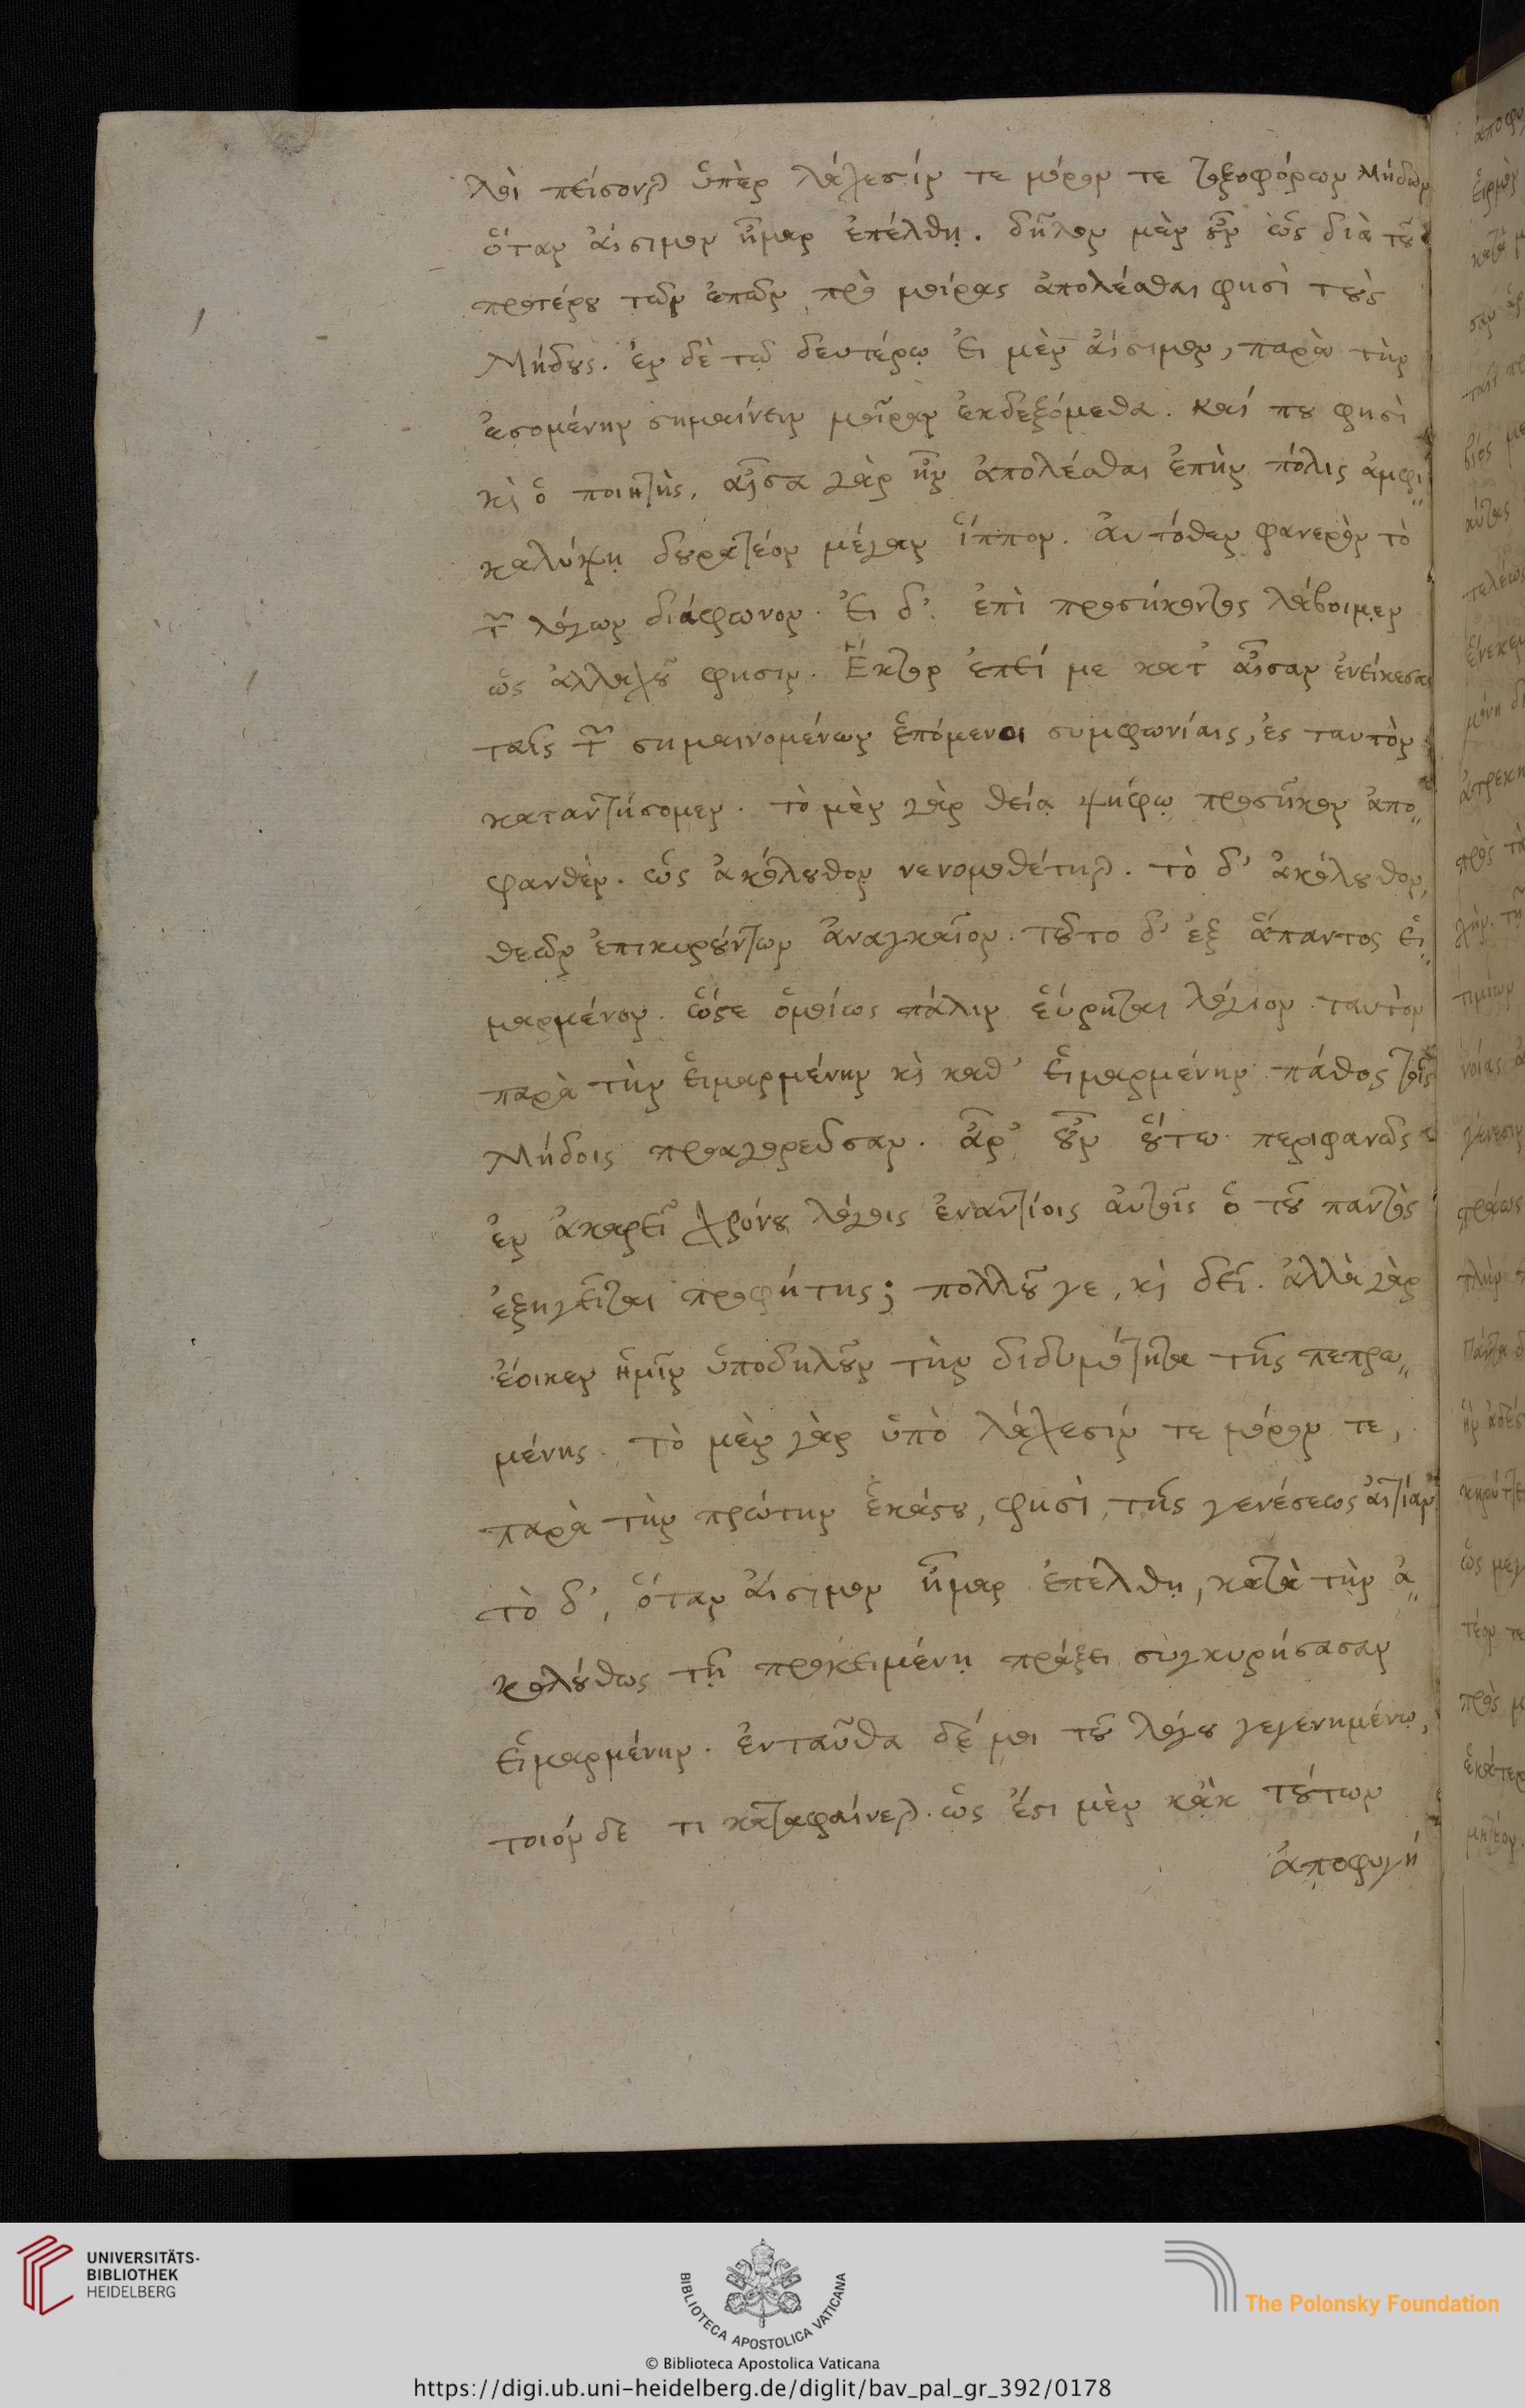 λοὶ πείσονται ὑπὲρ λάχεσίν τε μόρον τε τοξοφόρων Μήδων
ὅταν αἴσιμον ἦμαρ ἐπέλθῃ. δῆλον μὲν οὖν ὡς διὰ τοῦ
προτέρου τῶν ἐπῶν πρὸ μοίρας ἀπολέσθαι φησὶ τοὺς
Μήδους. ἐν δὲ τῷ δευτέρῳ εἰ μὲν αἴσιμον, παρὰ τὴν
ἐσομένην σημαίνειν μοῖραν ἐκδεξόμεθα. καί που φησὶ
καὶ ὁ ποιητὴς, αἶσα γὰρ ἦν ἀπολέσθαι ἐπὴν πόλις ἀμφι„
καλύψῃ δουρατέον μέγαν ἵππον. αὐτόθεν φανερὸν τὸ
τῶν λόγων διάφωνον. εἰ δ' ἐπὶ προσήκοντος λάβοιμεν
ὡς ἀλλαχοῦ φησιν. Ἕκτορ ἐπεί με κατ' αἶσαν ἐνείκεσας
ταῖς τῶν σημαινομένων ἑπόμενοι συμφωνίαις, ἐς ταυτὸν
καταντήσομεν. τὸ μὲν γὰρ θείᾳ ψήφῳ προσῆκον ἀπο„
φανθὲν. ὡς ἀκόλουθον νενομοθέτηται. τὸ δ' ἀκόλουθον,
θεῶν ἐπικυρούντων ἀναγκαῖον. τοῦτο δ' ἐξ ἅπαντος εἱ„
μαρμένον. ὥστε ὁμοίως πάλιν εὕρηται λόγιον ταυτὸν
παρὰ τὴν εἱμαρμένην καὶ καθ' εἱμαρμένην πάθος τοῖς
Μήδοις προαγορεῦσαν. ἆρ' οὖν οὕτω περιφανῶς
ἐν ἀκαρεῖ χρόνου λόγοις ἐναντίοις αὐτοῖς ὁ τοῦ παντὸς
ἐξηγεῖται προφήτης; πολλοῦ γε, καὶ δεῖ. ἀλλὰ γὰρ
ἔοικεν ἡμῖν ὑποδηλοῦν τὴν διδυμότητα τῆς πεπρω„
μένης. τὸ μὲν γὰρ ὑπὸ λάχεσίν τε μόρον τε,
παρὰ τὴν πρώτην ἑκάστου, φησὶ, τῆς γενέσεως αἰτίαν
τὸ δ', ὅταν αἴσιμον ἦμαρ ἐπέλθῃ, κατὰ τὴν ἀ„
κολούθως τῇ προκειμένῃ πράξει συγκυρήσασαν
εἱμαρμένην. ἐνταῦθα δέ μοι τοῦ λόγου γεγενημένῳ,
τοιόνδε τι καταφαίνεται. ὡς ἔστι μὲν κἀκ τούτων
ἀποφυγή
UNIVERSITÄTS-
BIBLIOTHEK
HEIDELBERG
BIBLIOTECA APOSTOLICA VATICANA
The Polonsky Foundation
© Biblioteca Apostolica Vaticana
https://digi.ub.uni-heidelberg.de/diglit/bav_pal_gr_392/0178